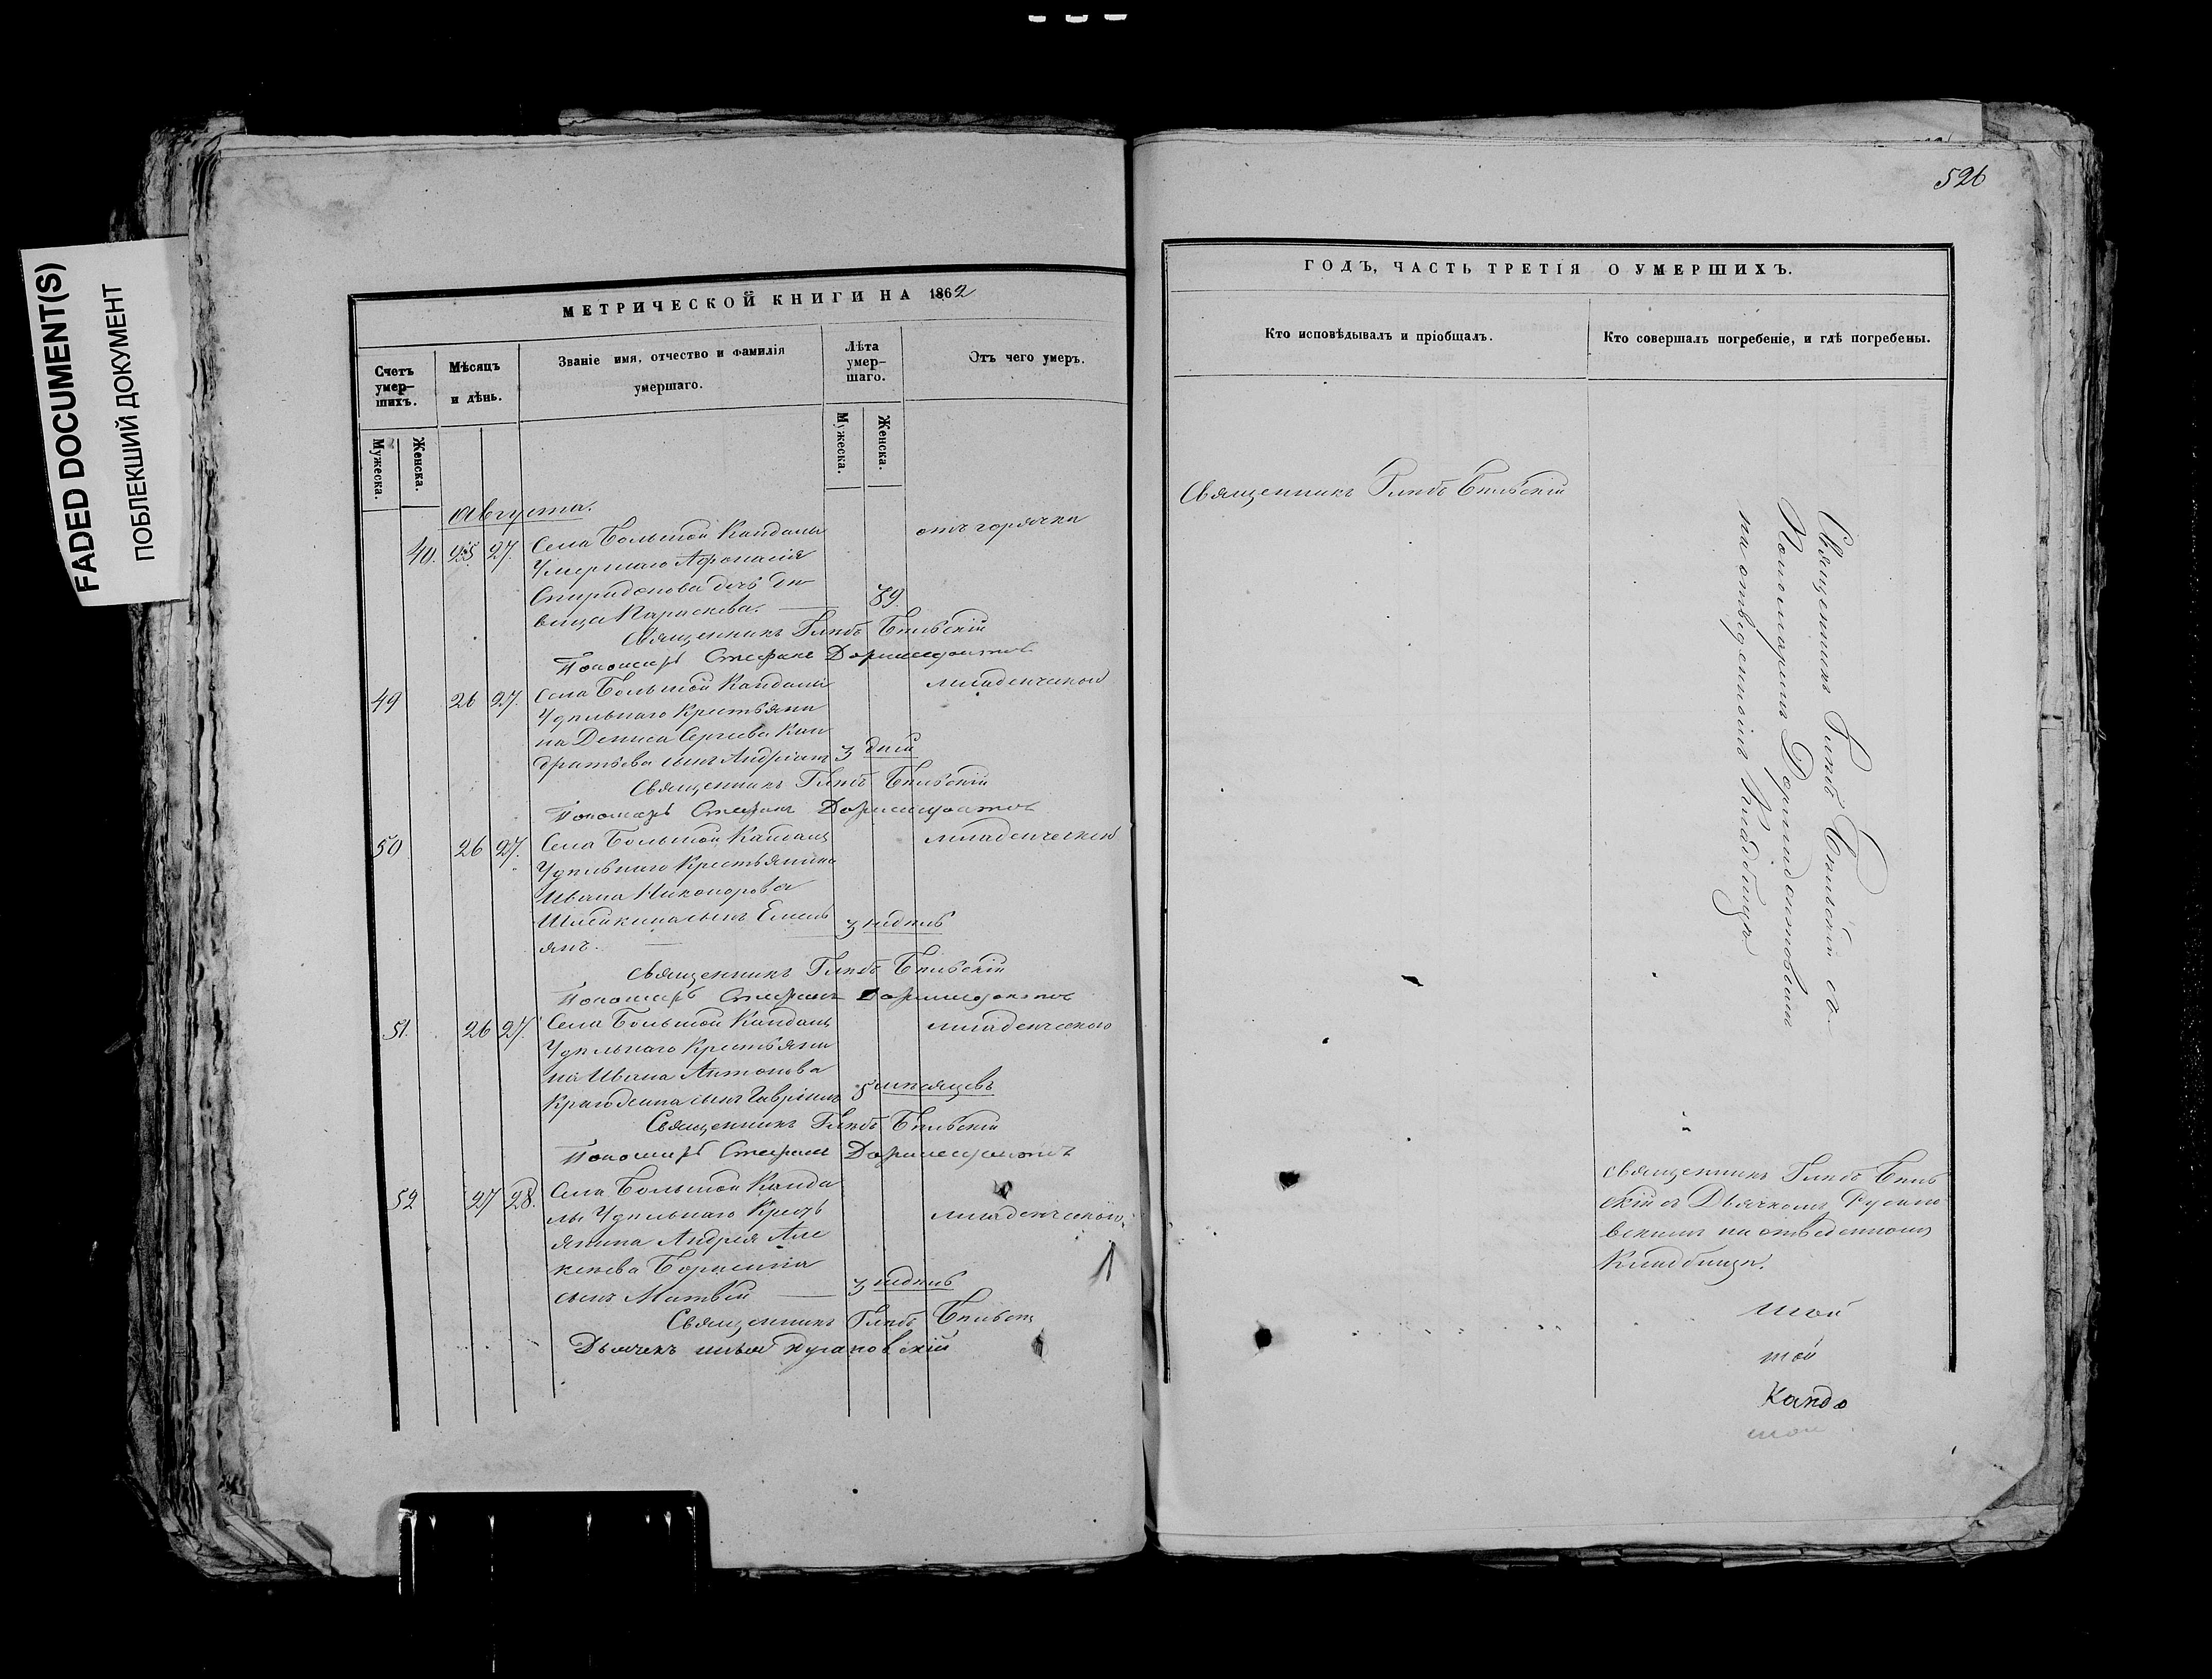 FADED DOCUMENT(S)
ПОБЛЕКШИЙ ДОКУМЕНТ
МЕТРИЧЕСКОЙ КНИГИ НА 1862
Счетъ умер-шихъ.
Мѣсяцъ и дѣнь.
Званіе имя, отчество и фамилія умершаго.
Лѣта умер-шаго.
Отъ чего умеръ.
Мужеска.
Женска.
Мужеска.
Женска.
Августа.
40. 25. 27. Села Большой Кандалы отъ горячки
Умершаго Афонасія
Спиридонова дочь дѣ-
вица Параскева. 89.
Священникъ Глѣбъ Бѣльскій
Пономарь Стефанъ Доримедонтовъ
49 26 27. Села Большой Кандалы младенческой
Удѣльнаго Крестьяни
на Дениса Сергѣева Кон
дратьева сынъ Андріанъ 3 дней
Священникъ Глѣбъ Бѣльскій
Пономарь Стефанъ Доримедонтовъ
50 26 27. Села Большой Кандалы младенческой
Удѣльнаго Крестьянина
Ивана Никонорова
сынъ Емель 3 недѣль
янъ.
Священникъ Глѣбъ Бѣльскій
Пономарь Стефанъ Доримедонтовъ
51. 26 27. Села Большой Кандалы младенческого
Удѣльнаго Крестьяни
на Ивана Антонова
сынъ Гавріилъ 5 мѣсяцевъ
Священникъ Глѣбъ Бѣльскій
Пономарь Стефанъ Доримедонтовъ
52 27 28. Села Большой Канда
лы Удѣльнаго Крестъ младенческой
янина Андрея Але
ксѣева
сынъ Матвей 3 недѣль
Священникъ Глѣбъ Бѣльскій
Дьячекъ
526
ГОДЪ, ЧАСТЬ ТРЕТІЯ О УМЕРШИХЪ.
Кто исповѣдывалъ и пріобщалъ.
Кто совершалъ погребеніе, и гдѣ погребены.
Священникъ Глѣбъ Бѣльскій
Священникъ Глѣбъ Бѣльскій съ
Пономаремъ Доримедонтовымъ
на отведенномъ Кладбищѣ
Священникъ Глѣбъ Бѣль
скій съ Дьячкомъ
на отведенномъ
Кладбищѣ.
шой
той
Кандо
шой